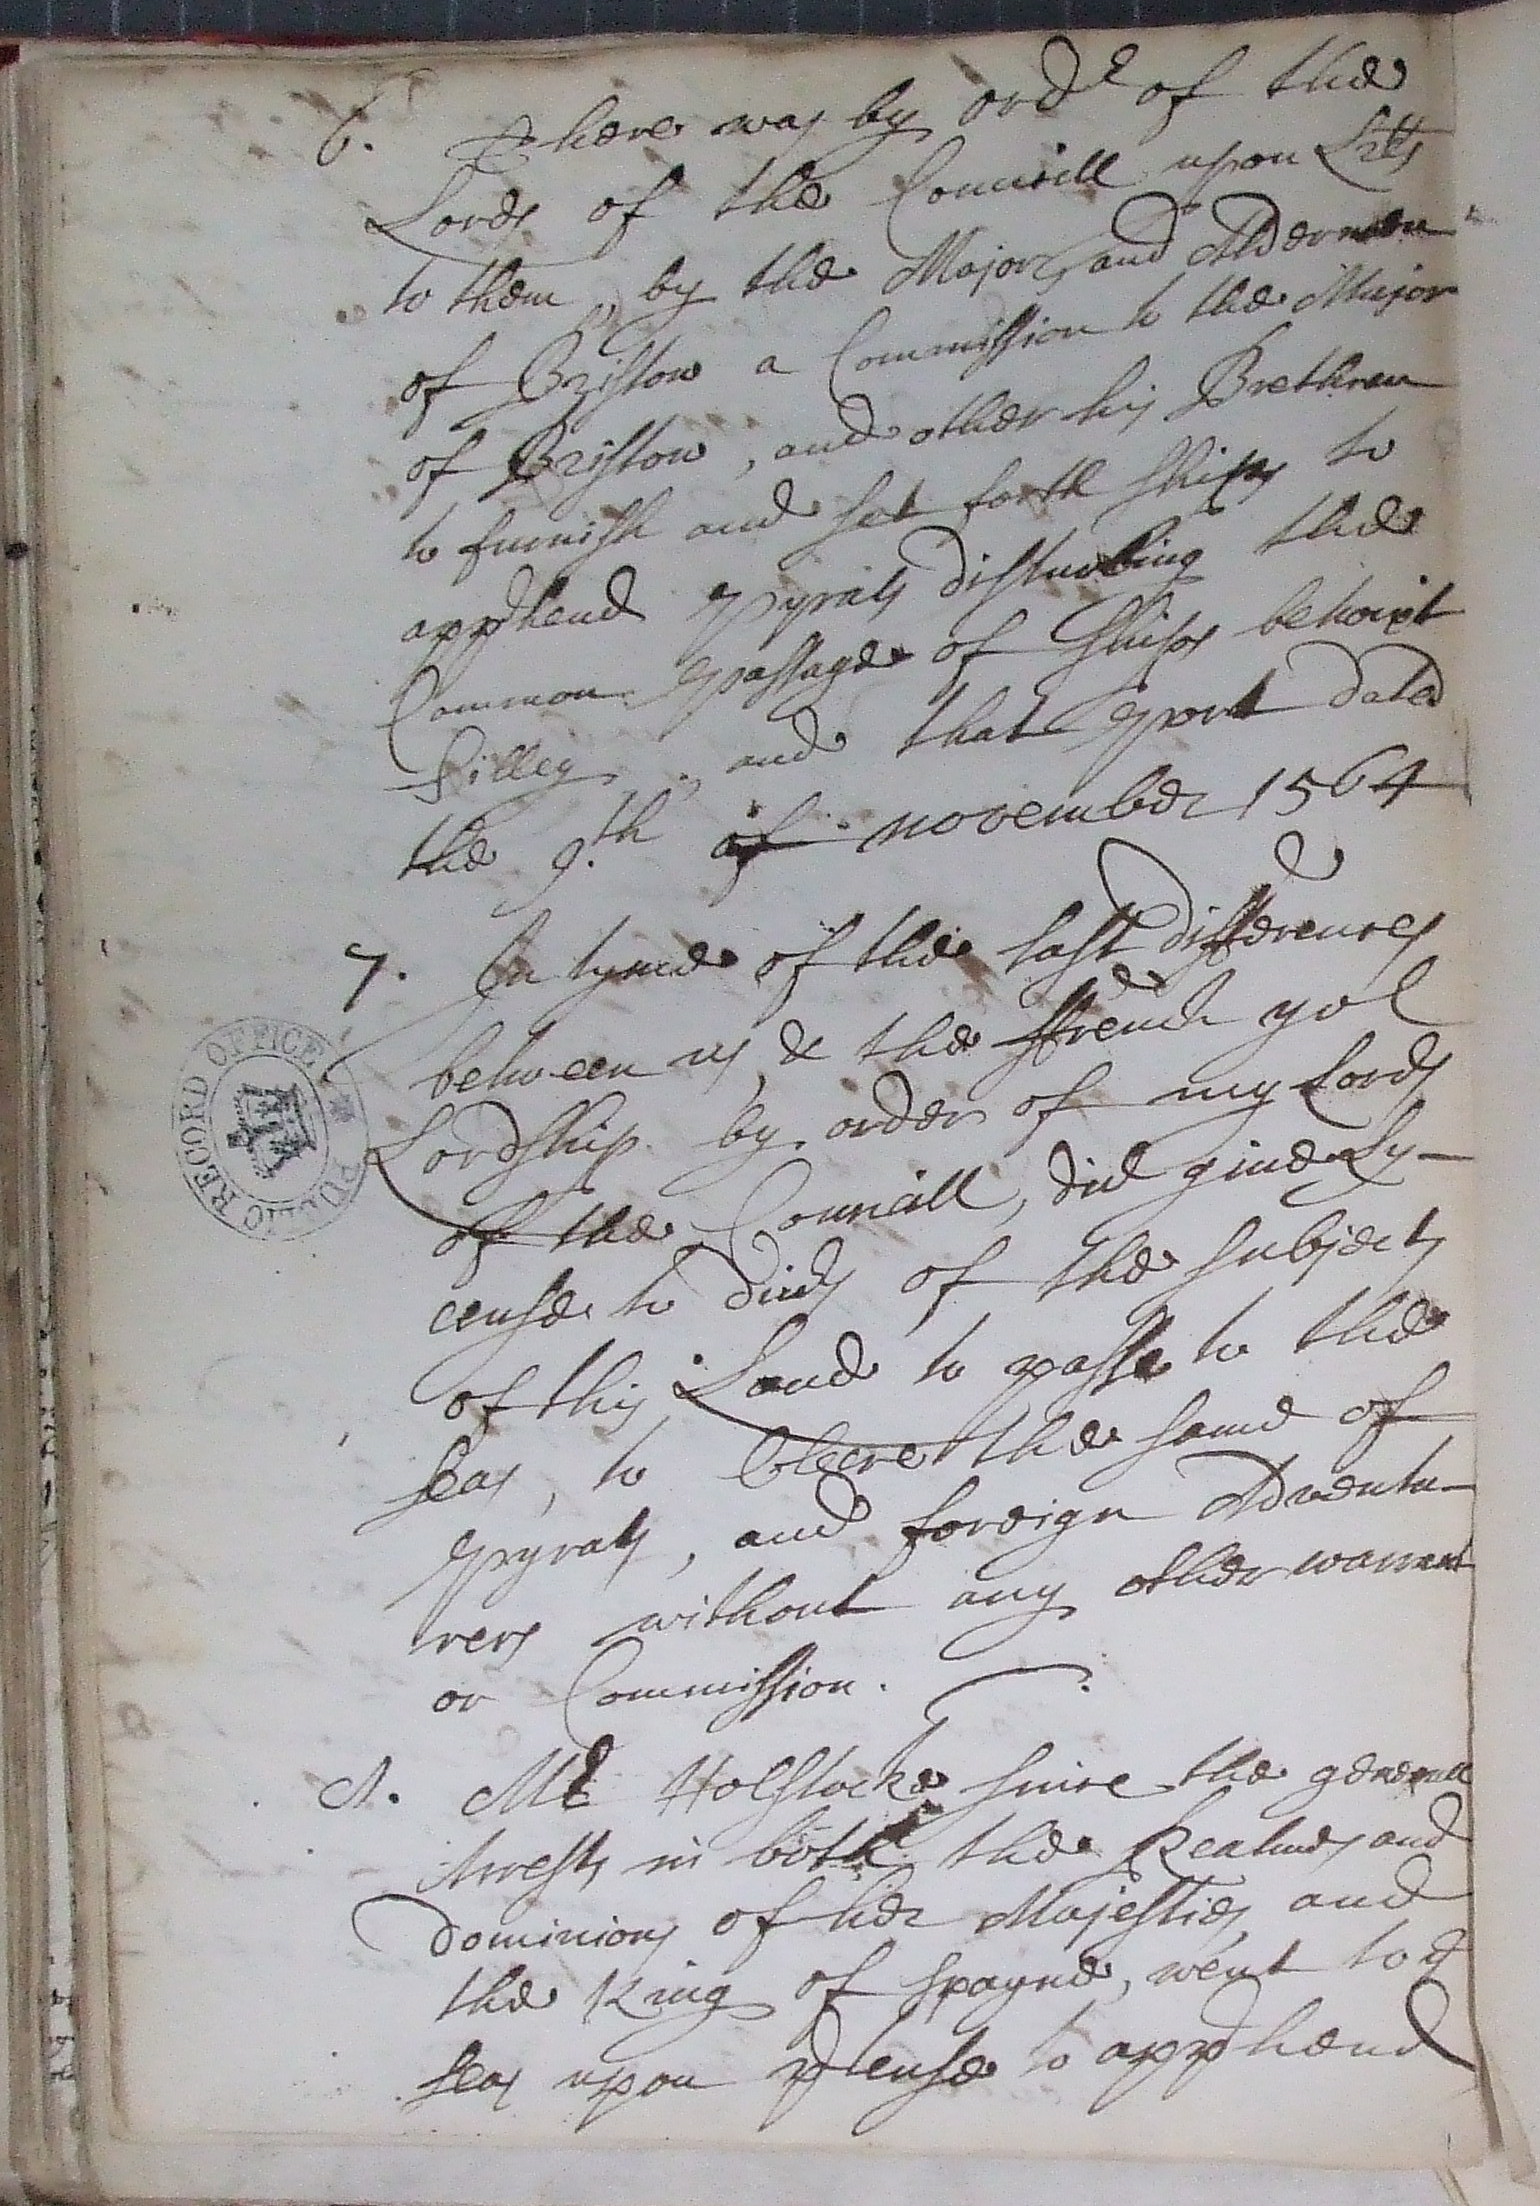 6. There was by ordr of the
Lords of the Councill upon Lrs
to them, by the Major, and Aldermen
of Bristow a Commission to the Major
of Bristow, and other his Brethren
to furnish and set forth ships to
apprhend Pyrats disturbing the
Common passage of ships betwixt
Silley, and that Port dated
the 9.th of november 1564
7. In tyme of the last differences
between us & the ffrench yor
Lordship by order of my Lords
of the Councill, did give Ly-
cense to divers of the subjects
of this Land to passe to the
seas, to cleere the same of
Pyrats, and foreign Adventu-
rers without any other warrant
or Commission.
8. Mr Holstocke since the generall
Arrests in both the Realmes and
dominions of her Majesties, and
the King of Spayne, went to ye
seas upon prtense to apprhend
PUBLIC RECORD OFFICE